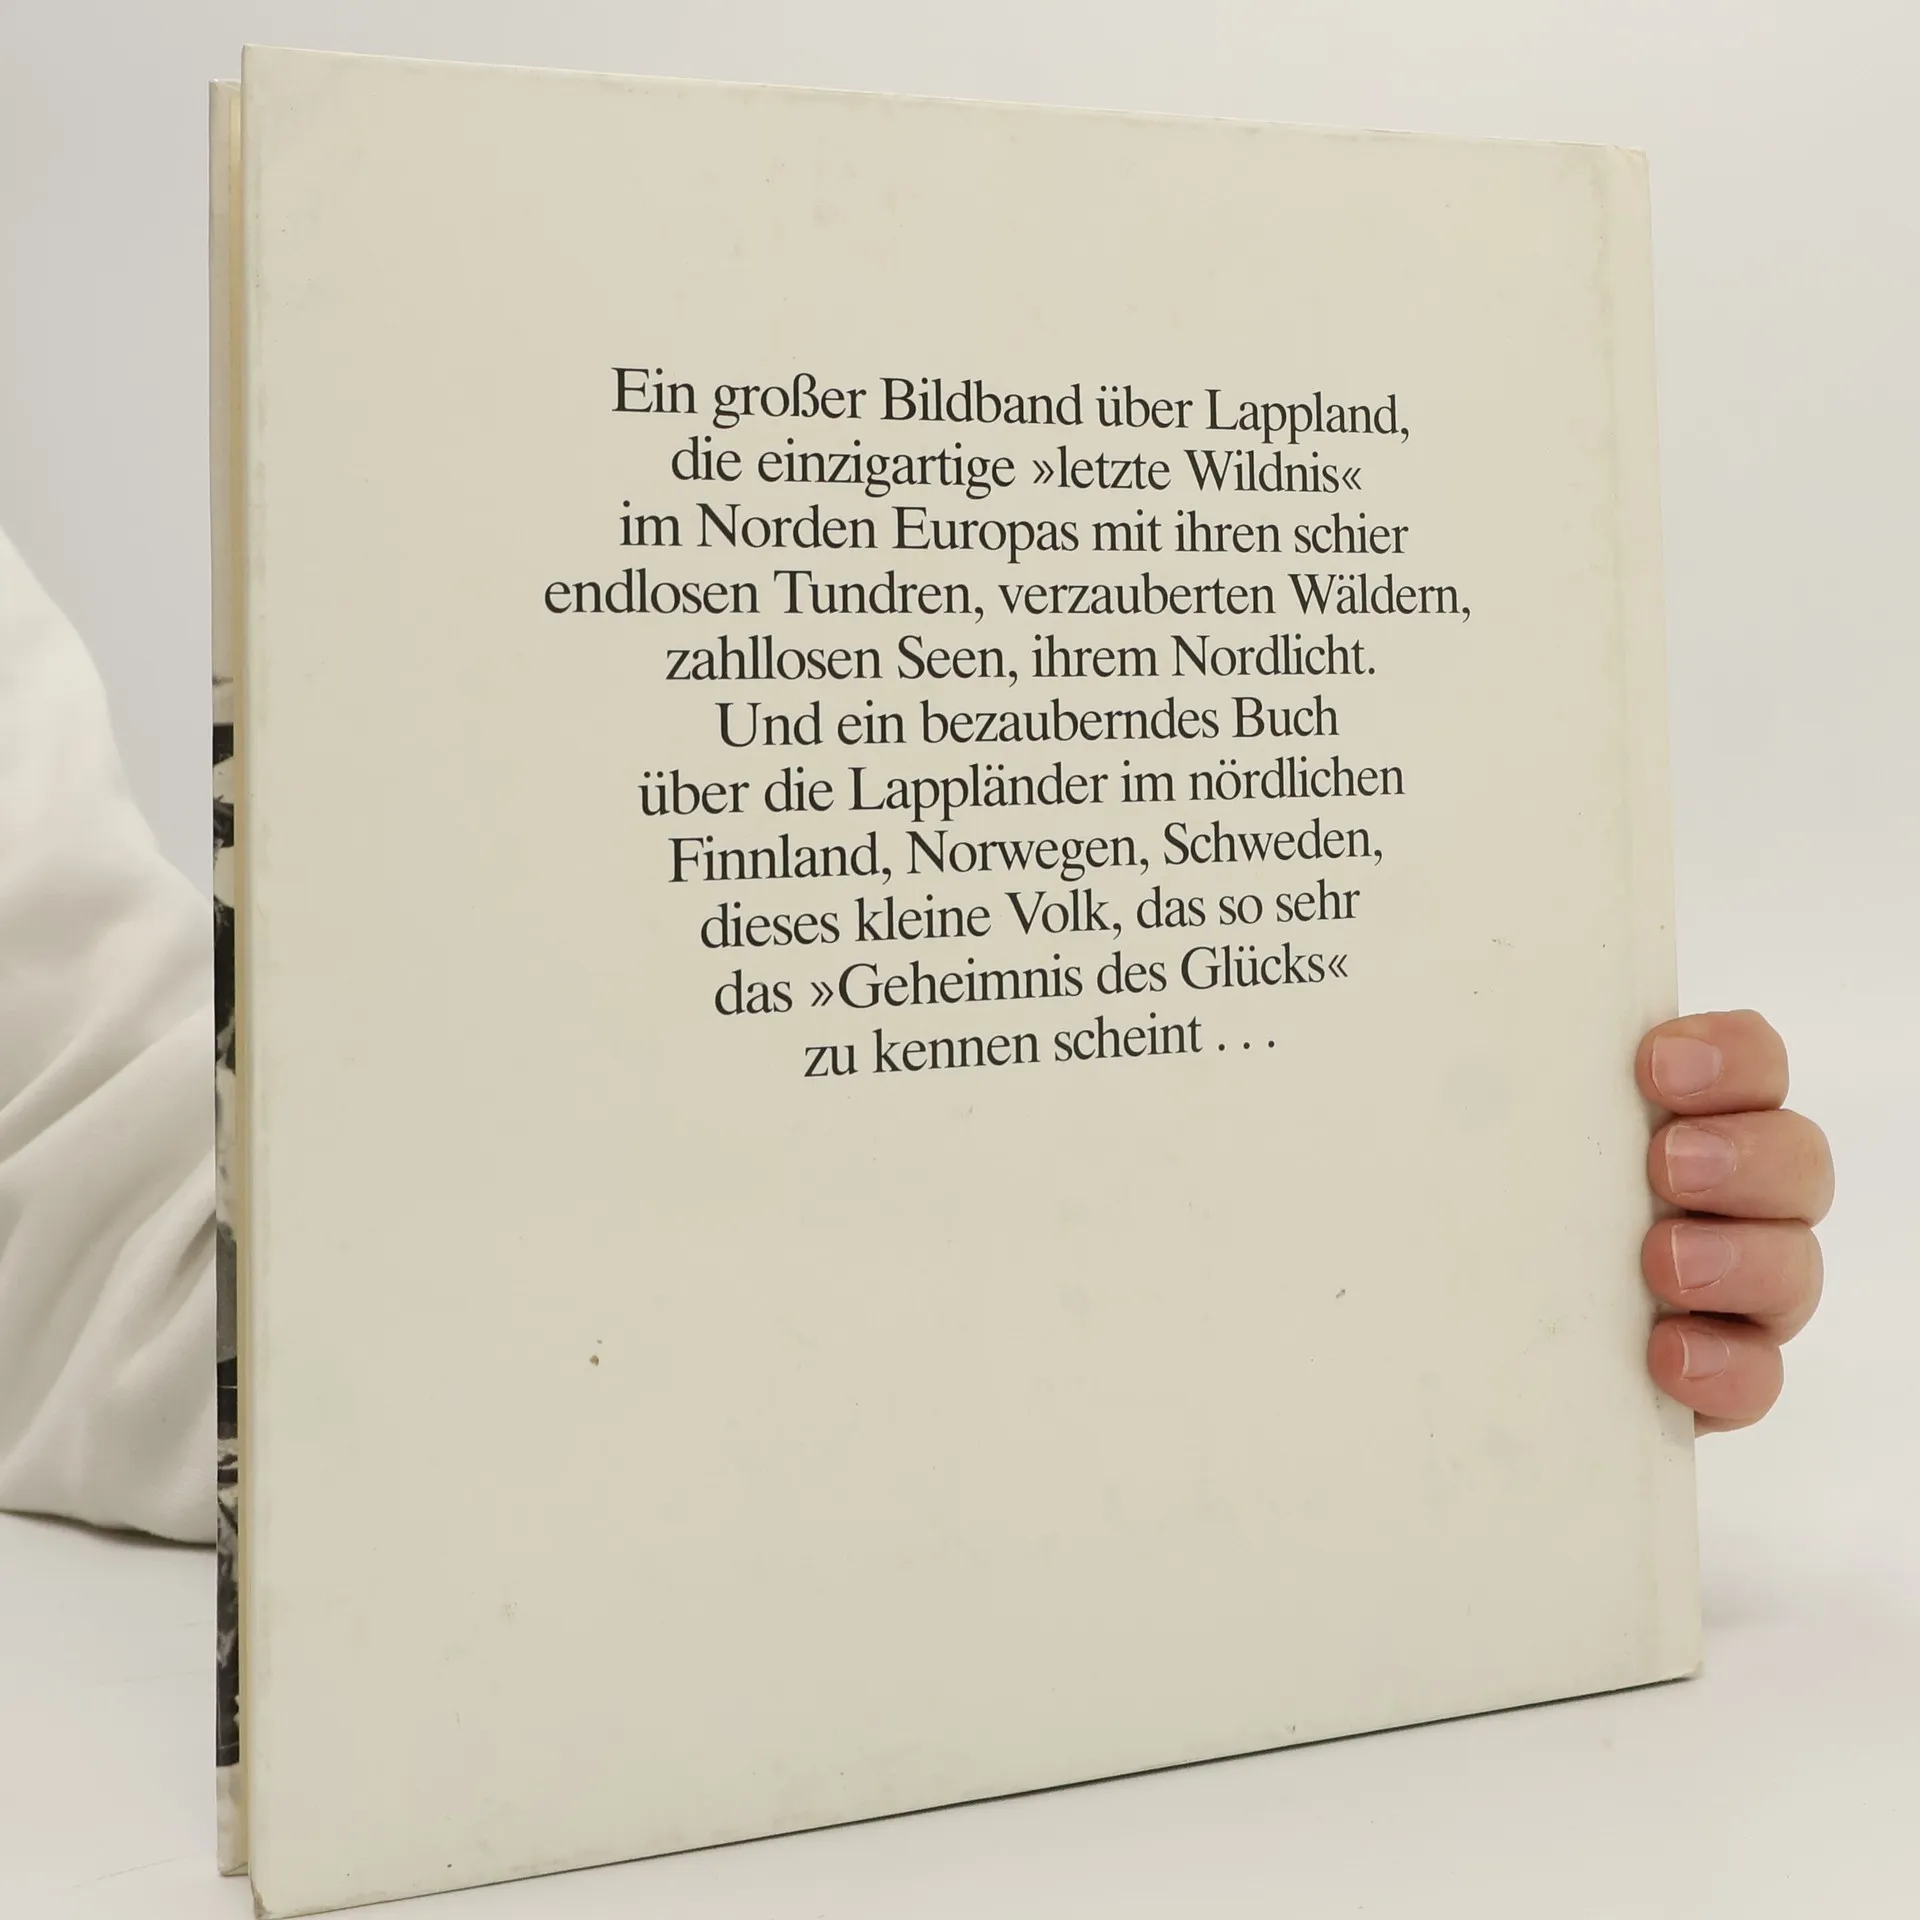 Ein großer Bildband über Lappland,
die einzigartige »letzte Wildnis«
im Norden Europas mit ihren schier
endlosen Tundren, verzauberten Wäldern,
zahllosen Seen, ihrem Nordlicht.
Und ein bezauberndes Buch
über die Lappländer im nördlichen
Finnland, Norwegen, Schweden,
dieses kleine Volk, das so sehr
das »Geheimnis des Glücks«
zu kennen scheint . . .